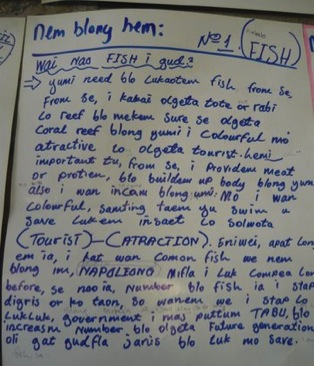 Nem blong hem: No 1 (FISH)
Wai nao FISH i gud?
⇒ yumi need blo Lukaotem fish from se,
From se, i kakai olgeta tote or rabi
Lo reef blo mekem sure se olgeta
Coral reef blong yumi i colourful mo
atractive lo olgeta tourist. Hemi
important tu, from se, i Providem meat
or protien, blo buildem up body blong yumi
also i wan incam blong umi. Mo i wan
colourful, samting taem yu swim u
save lukem insaet lo solwota
(TOURIST)-(ATRACTION). Eniwei, apat lon
em ia, i kat wan comon fish we nem
blong im, NAPOLIONG. Mifla i Luk compea lon
before, se nao ia, Number blo fish ia i stap
digris or ko taon, So wanem we i stap lo
LukLuk, government i mas puttum TABU, blo
increasm Number, blo olgeta Future generation
oli gat gudfla janis blo Luk mo save.